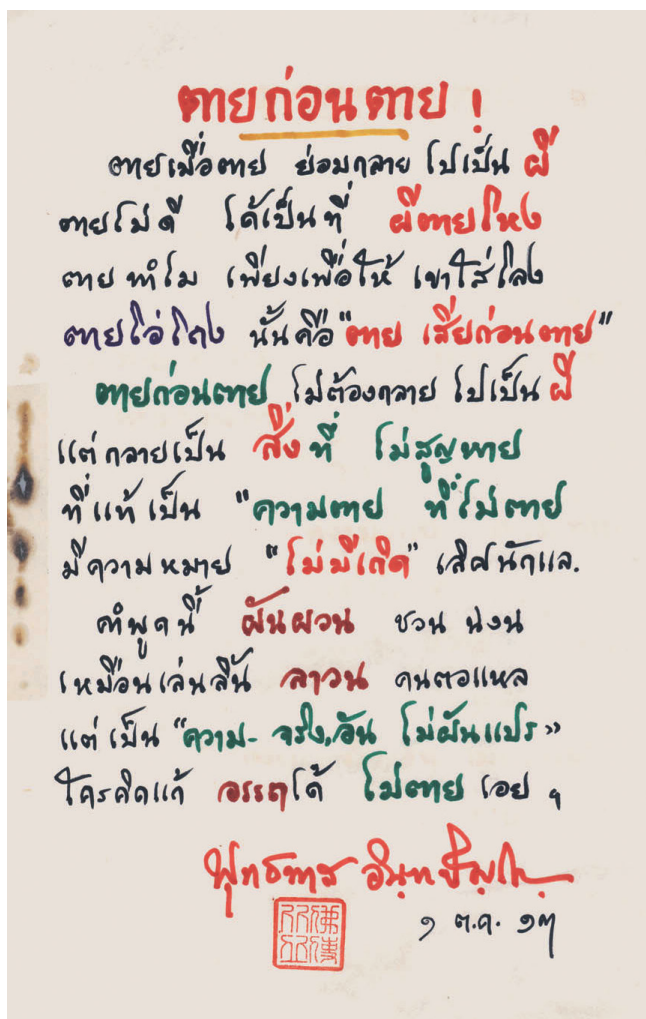 ตายก่อนตาย !
ตายเมื่อตาย ย่อมกลาย ไปเป็น ผี
ตายไม่ดี ได้เป็นที่ ผีตายโหง
ตาย ทำไม เพียงเพื่อให้ เขาใส่โลง
ตายโอ่โถง นั้นคือ "ตาย เสียก่อนตาย"
ตายก่อนตาย ไม่ต้องกลาย ไปเป็น ผี
แต่ กลายเป็น สิ่งที่ ไม่สูญหาย
ที่แท้ เป็น "ความตาย ที่ไม่ตาย
มีความหมาย "ไม่มีเกิด" เลิศนักแล.
คำพูดนี้ ผันผวน ชวน ฉงน
เหมือนเล่นลิ้น ลาวน คนตอแหล
แต่ เป็น "ความ- จริง,อัน ไม่ผันแปร"
ใครคิดแก้ อรรถได้ ไม่ตาย เอย ฯ
พุทธทาส อินฺทปญฺโญ
๑ ต.ค. ๑๓